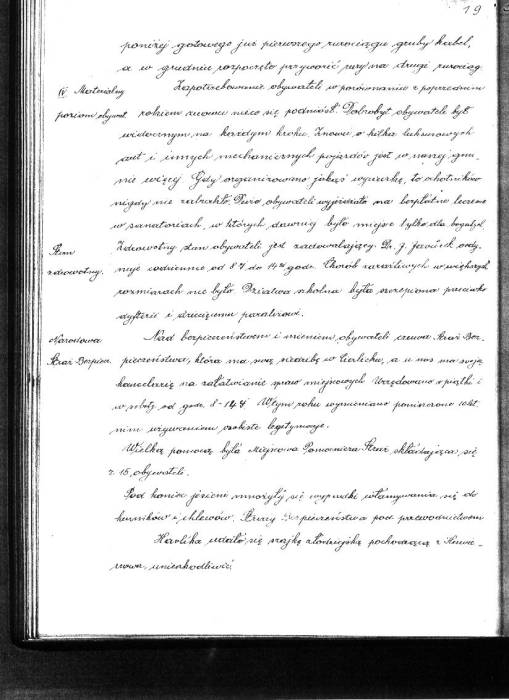 19
poniżej gotowego już pierwszego rurociągu gruby kabel,
a w grudniu rozpoczęto przywozić rury na drugi rurociąg
Materialny poziom obywat.
Zapotrzebowanie obywateli w porównaniu z poprzednim
rokiem znowu nieco się podniósł. Dobrobyt obywateli był
widocznym na każdym kroku. Znowu o kilka luksusowych
aut i innych mechanicznych pojazdów jest w naszej gmi-
nie więcej. Gdy organizowano jakąś wycieczkę, to ochotników
nigdy nie zabrakło. Dużo obywateli wyjeżdżało na bezpłatne leczenie
w sanatoriach, w których dawniej było miejsce tylko dla bogatych.
Stan zdrowotny.
Zdrowotny stan obywateli jest zadowalający. Dr. J. ordy-
nuje codziennie od 8 do 14 godz. Chorób zaraźliwych w większych
rozmiarach nie było. Dziatwa szkolna była szczepiona przeciwko
dyfterii i dziecięcemu paraliżowi.
Narodowa Straż Bezpiecz.
Nad bezpieczeństwem i mieniem obywateli czuwa Straż Bez-
pieczeństwa, która ma swą siedzibę w Cierlicku, a u nas ma swoją
kancelarię na załatwianie spraw miejscowych. Urzędowano w piątki i
w soboty od godz. 8-14. W tym roku wymieniano poniszczone
nim używaniem osobiste legitymacje.
Wielką pomocą była Miejscowa Pomocnicza Straż składająca się
z 15 obywateli.
Pod koniec jesieni mnożyły się wypadki włamywania się do
kurników i chlewów. Straży Bezpieczeństwa pod przewodnictwem
Havlika udało się szajkę złodziejską pochodzącą z
unieszkodliwić.